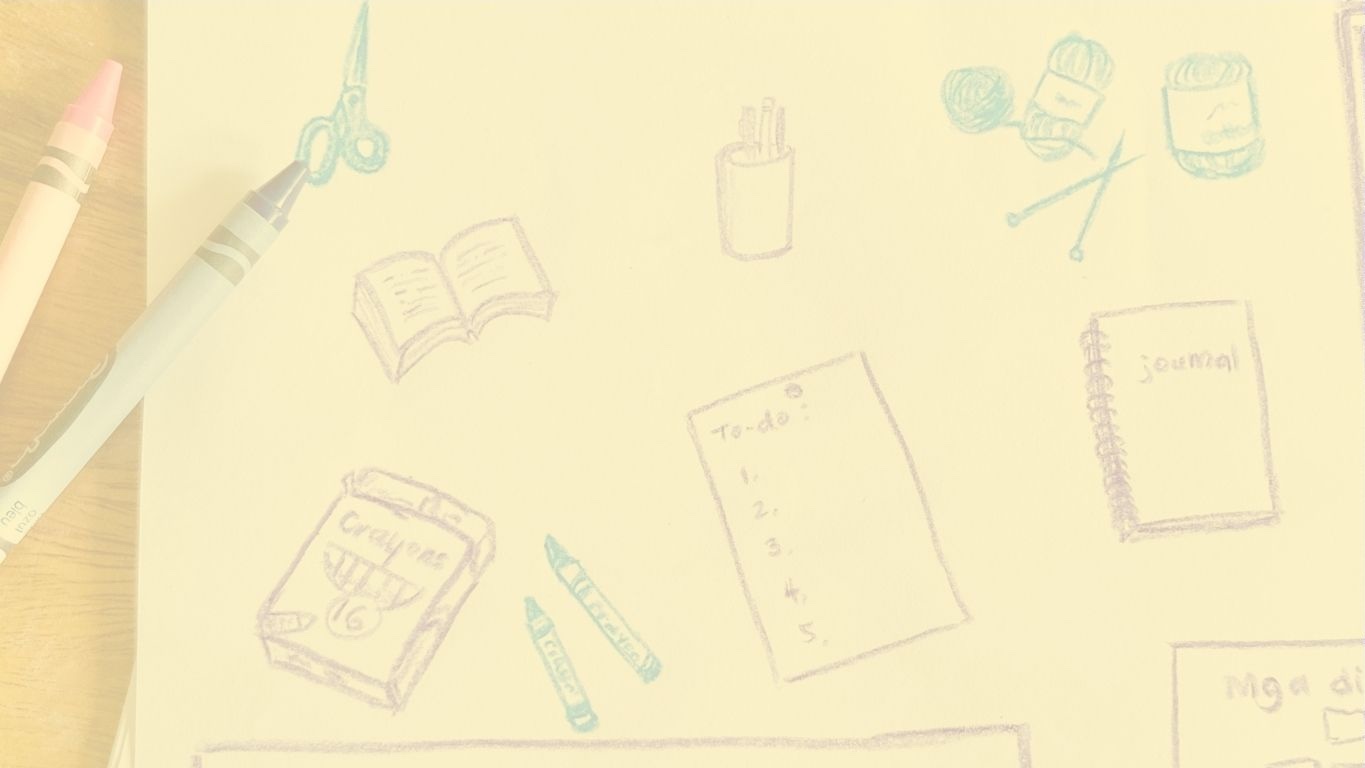 journal
To-do:
1.
2.
3.
4.
5.
Crayons
16
crayon
crayon
Mga di
bleu
azul